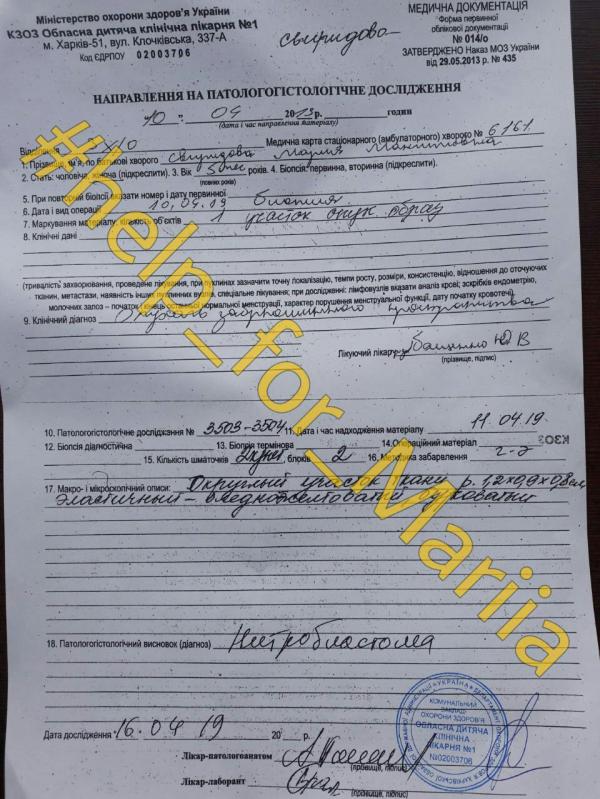 Міністерство охорони здоров'я України
КЗОЗ Обласна дитяча клінічна лікарня №1
м. Харків-51, вул. Клочківська, 337-А
Код ЄДРПОУ 02003706
свиридова
МЕДИЧНА ДОКУМЕНТАЦІЯ
Форма первинної
облікової документації
№ 014/о
ЗАТВЕРДЖЕНО Наказ МОЗ України
від 29.05.2013 р. № 435
НАПРАВЛЕННЯ НА ПАТОЛОГОГІСТОЛОГІЧНЕ ДОСЛІДЖЕННЯ
10 04 20 р. годин
(дата і час направлення матеріалу)
Відділення Медична карта стаціонарного (амбулаторного) хворого № 6161
1. Прізвище, ім'я, по батькові хворого свиридова Мария
2. Стать: чоловіча, жіноча (підкреслити). 3. Вік 5 мес років. 4. Біопсія: первинна, вторинна (підкреслити).
(повних років)
5. При повторній біопсії вказати номер і дату первинної
6. Дата і вид операції 10.04.19 биопсия
7. Маркування матеріалу, кількість об'єктів 1 участок опух. образ
8. Клінічні дані
(тривалість захворювання, проведене лікування, при пухлинах зазначити точну локалізацію, темпи росту, розміри, консистенцію, відношення до оточуючих
тканин, метастази, наявність інших пухлинних вузлів, спеціальне лікування; при дослідженні: лімфовузлів вказати аналіз крові; зскрібків ендометрію,
молочних залоз – початок і кінець останньої нормальної менструації, характер порушення менструальної функції, дату початку кровотечі)
9. Клінічний діагноз Опухоль забрюшинного пространства
Лікуючий лікар
(прізвище, підпис)
10. Патологогістологічне дослідження № 3503-3504 11. Дата і час надходження матеріалу 11.04.19.
12. Біопсія діагностична 13. Біопсія термінова 14. Операційний матеріал
КЗОЗ
15. Кількість шматочків блоків 2 16. Методика забарвлення г-э
17. Макро- і мікроскопічний описи: Округлый участок ткани р. 1,2х0,9х0,8см
эластичный – бледножелтоватый
18. Патологогістологічний висновок (діагноз) Нитробластома
Дата дослідження 16.04 19 20 р.
Лікар-патологоанатом
(прізвище, підпис)
Лікар-лаборант
(прізвище, підпис)
КОМУНАЛЬНИЙ
ЗАКЛАД
ОХОРОНИ ЗДОРОВ'Я
ОБЛАСНА ДИТЯЧА
КЛІНІЧНА
ЛІКАРНЯ №1
№02003706
#help_for_Mariia